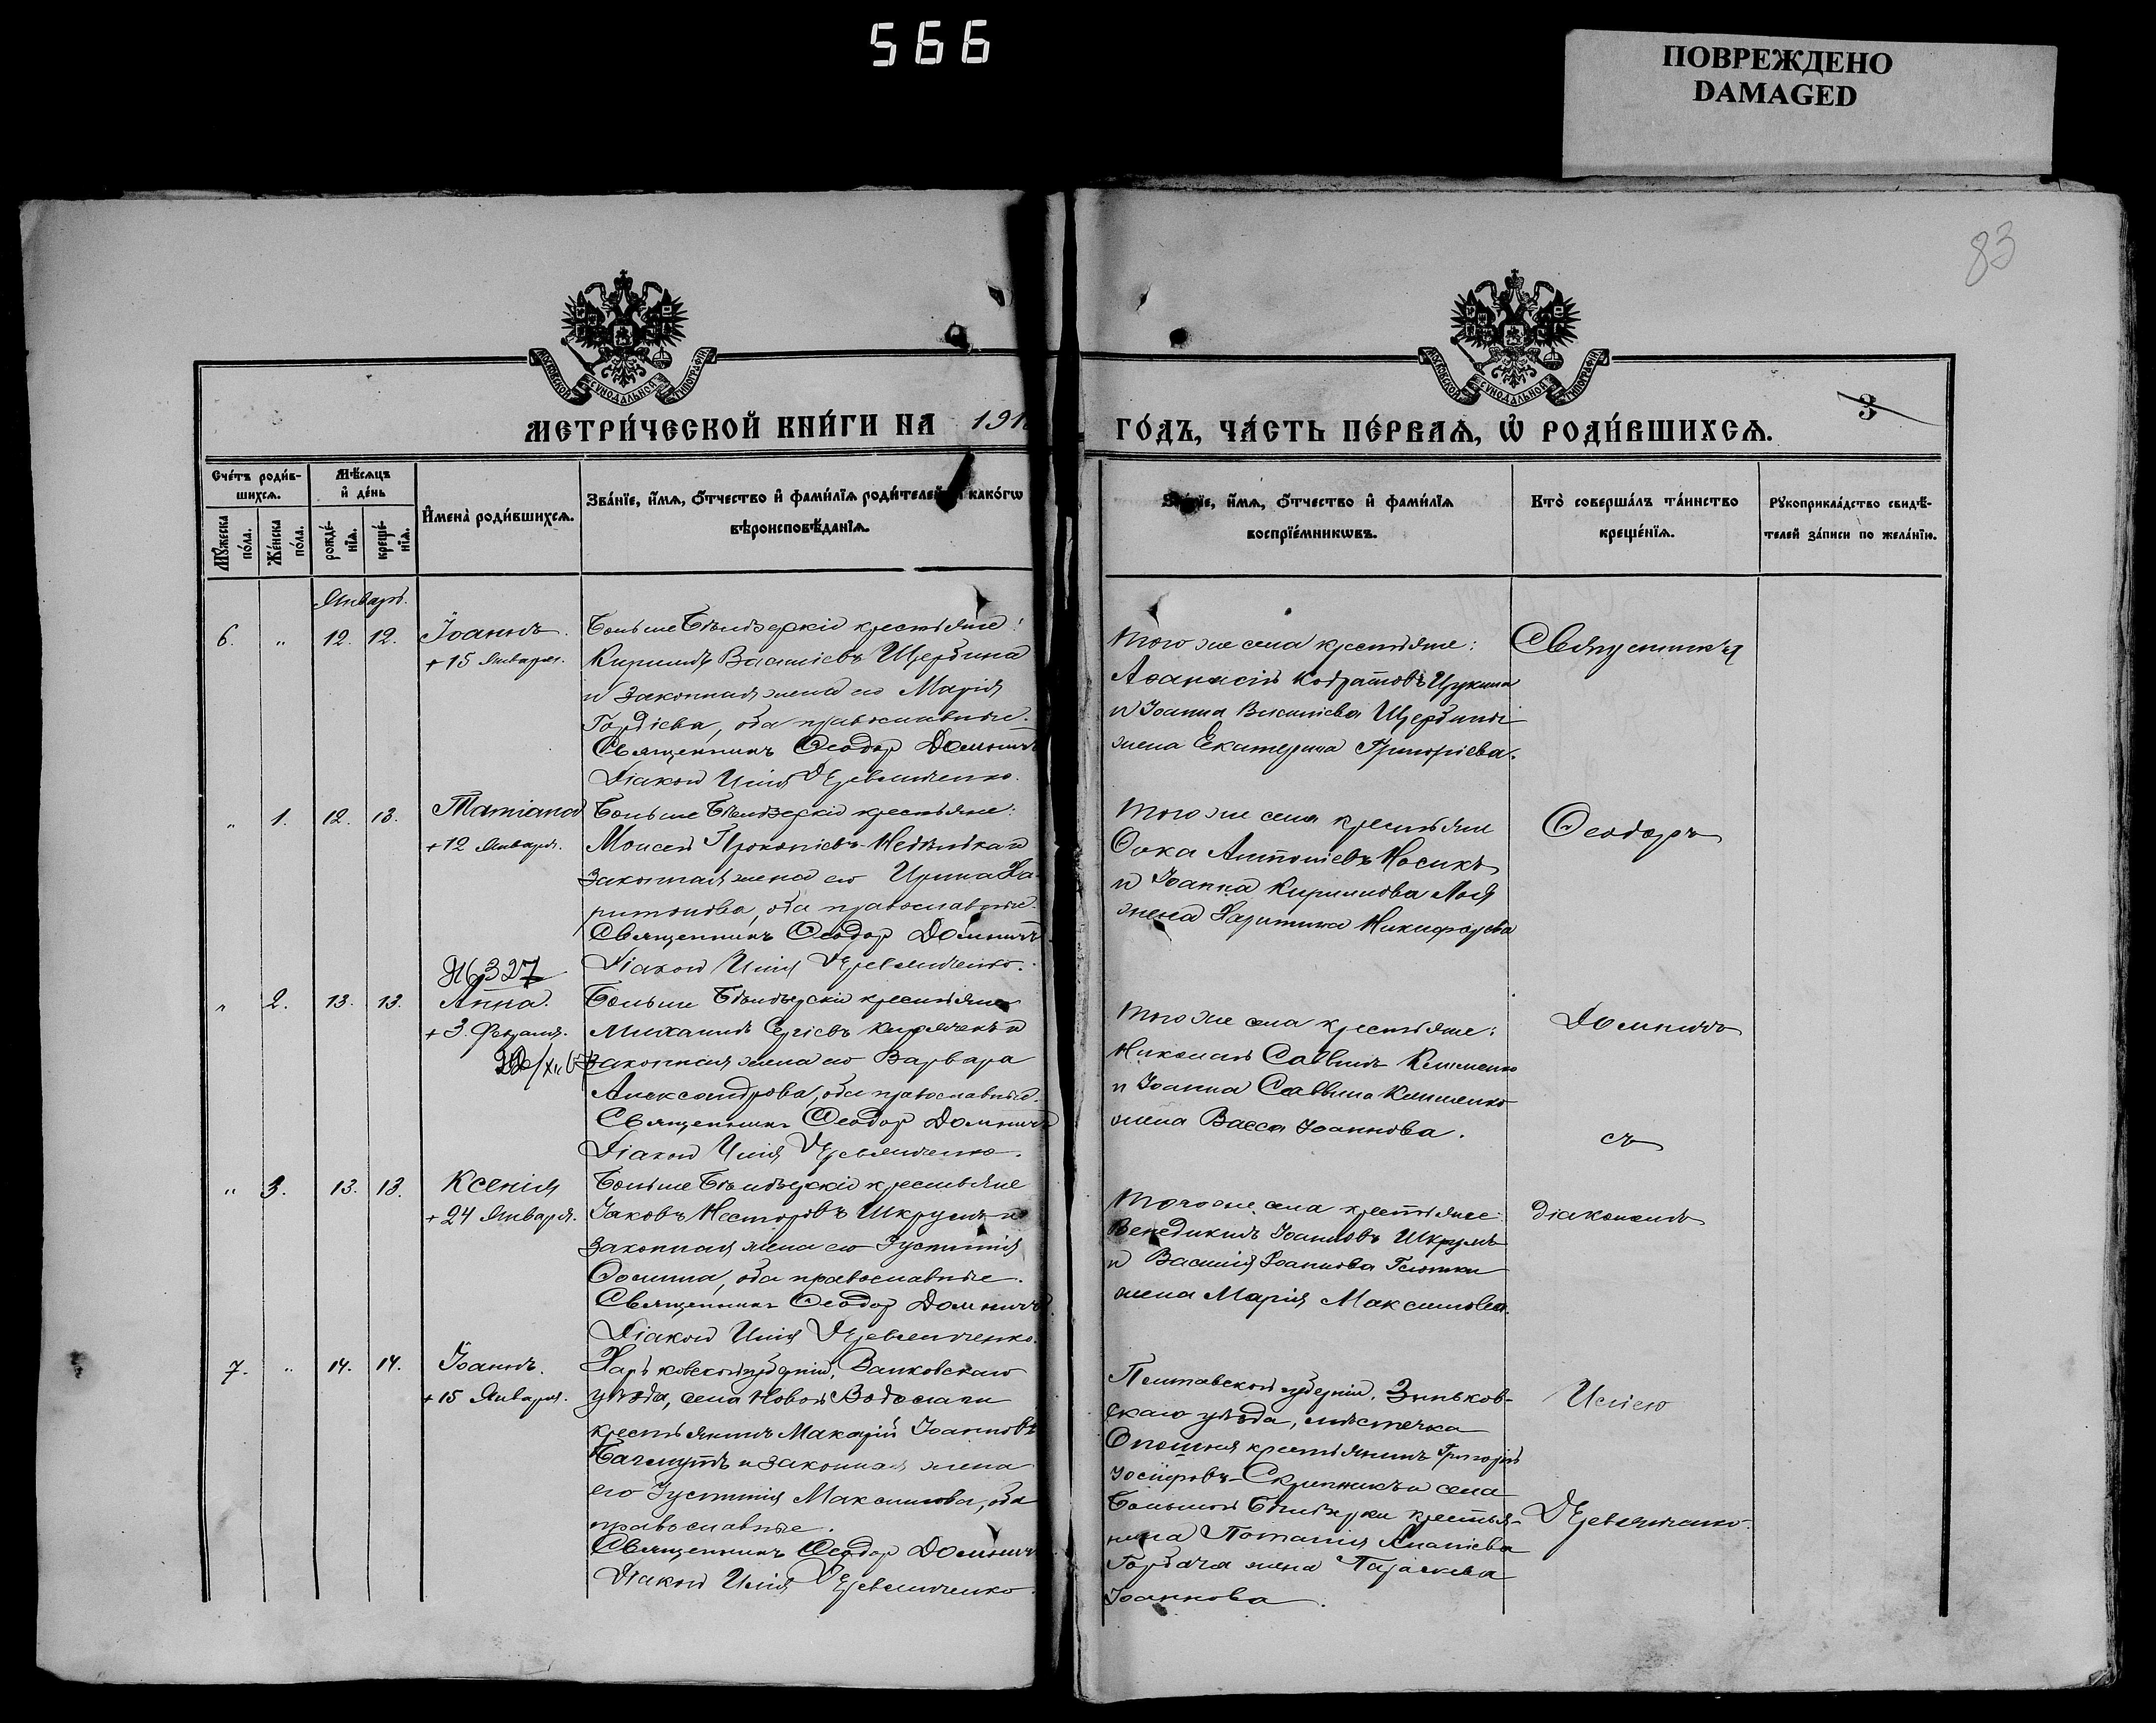 566
ПОВРЕЖДЕНО
DAMAGED
83
МОСКОВСКОЙ СѴНОДАЛЬНОЙ ТИПОГРАФІИ
МОСКОВСКОЙ СѴНОДАЛЬНОЙ ТИПОГРАФІИ
3
МЕТРИ́ЧЕСКОЙ КНИ́ГИ НА 191
ГО́ДЪ, ЧА́СТЬ ПЕ́РВАѦ, Ѡ҆ РОДИ́ВШИХСѦ.
Сче́тъ роди́в-
шихсѧ.
Мꙋ́жеска по́ла.
Же́нска по́ла.
Мѣ́сѧцъ
и҆ де́нь
рожде́-
нїѧ.
креще́-
нїѧ.
И҆мена̀ роди́вшихсѧ.
Зва́нїе, и҆́мѧ, ѻ҆́тчество и҆ фами́лїѧ роди́телей како́гѡ
вѣроисповѣ́данїѧ.
и҆́мѧ, ѻ҆́тчество и҆ фами́лїѧ
воспрїе́мникѡвъ.
Кто̀ соверша́лъ та́инство
креще́нїѧ.
Рꙋкоприкла́дство свидѣ́-
телей за́писи по жела́нїю.
Январь.
6. " 12. 12. Іоаннъ.
+ 15 Января.
Больше Бѣлозерскіе крестьяне:
Кириллъ Василіевъ Щербина
и законная жена его Марія
Гордіева, оба православные.
Священникъ Ѳеодор Домнич
Діакон Илія Деревянченко.
Того же села крестьяне:
Аѳанасій
и Іоанна Василіева Щербины
жена Екатерина Григоріева.
Священникъ
" 1. 12. 13. Татіана
+ 12 Января.
Больше Бѣлозерскіе крестьяне:
Моисей Прокопіевъ и
законная жена его Ирина Ха-
ритонова, оба православные.
Священникъ Ѳеодор Домнич
Діакон Илія Деревянченко.
Того же села крестьяне
Ѳока Антоніевъ Носикъ
и Іоанна Кириллова
жена Харитина Никифорова
Ѳеодоръ
№327
" 2. 13. 13. Анна.
+ 3 Февраля.
Больше Бѣлозерскіе крестьяне
Михаилъ Сергіевъ и
законная жена его Варвара
Александрова, оба православные.
Священникъ Ѳеодор Домнич
Діакон Илія Деревянченко.
Того же села крестьяне:
Николай Саввинъ Клименко
и Іоанна Саввина Клименко
жена Васса Іоаннова.
Домничъ
съ
" 3. 13. 13. Ксенія
+ 24 Января.
Больше Бѣлозерскіе крестьяне
Іаковъ Несторовъ Шкрумъ и
законная жена его Іустинія
Ѳомина, оба православные.
Священникъ Ѳеодор Домнич
Діакон Илія Деревянченко.
Того же села крестьяне:
Венедиктъ Іоанновъ Шкрумъ
и Василія Іоаннова
жена Марія Максимова.
діакономъ
7. " 14. 14. Іоаннъ.
+ 15 Января.
Харьковской губерніи, Валковскаго
уѣзда, села Новой Водолаги
крестьянинъ Макарій Іоанновъ
Бахмутъ и законная жена
его Іустинія Максимова, оба
православные.
Священникъ Ѳеодор Домнич
Діакон Илія Деревянченко.
Полтавской губерніи, Зиньков-
скаго уѣзда, мѣстечка
Опошня крестьянинъ Григорій
Іосифовъ Скрипникъ и села
Большой Бѣлозерки крестья-
нина Потапія Ананіева
Горбача жена Параскева
Іоаннова.
Иліею
Деревянченко.